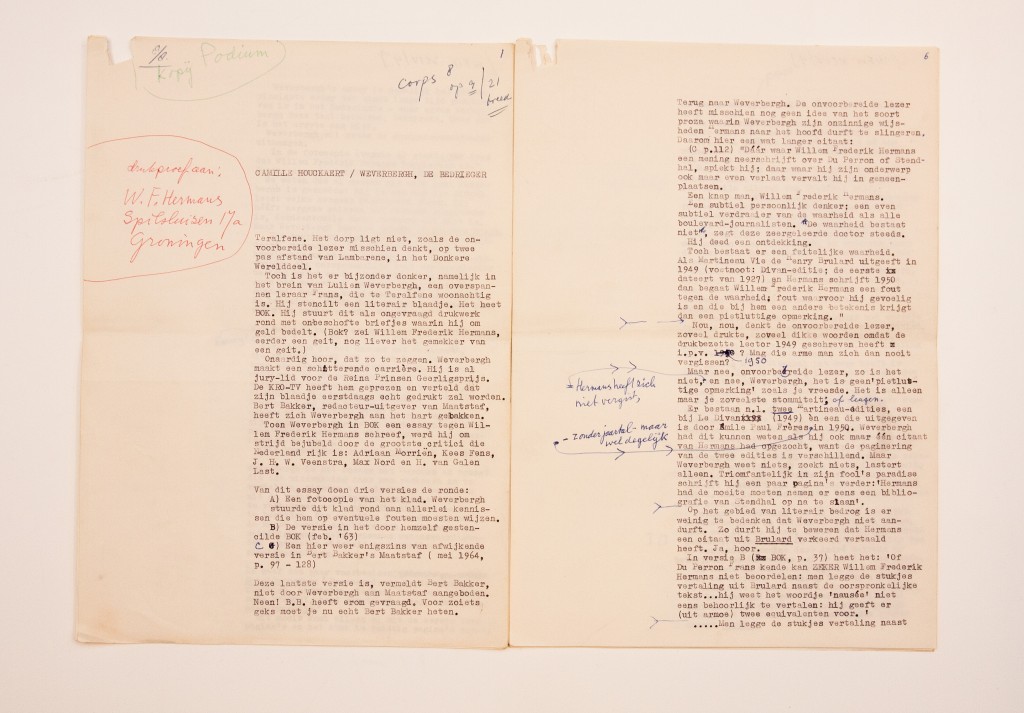 Kopij Podium
1
corps 8 op 9 / 21
breed
drukproef aan:
W. F. Hermans
Spilsluizen 17a
Groningen
CAMILLE HOUCKAERT / WEVERBERGH, DE BEDRIEGER
Teralfene. Het dorp ligt niet, zoals de on-
voorbereide lezer misschien denkt, op twee
pas afstand van Lambarene, in het Donkere
Werelddeel.
Toch is het er bijzonder donker, namelijk in
het brein van Lulien Weverbergh, een overspan-
nen leraar Frans, die te Teralfene woonachtig
is. Hij stencilt een literair blaadje. Het heet
BOK. Hij stuurt dit als ongevraagd drukwerk
rond met onbeschofte briefjes waarin hij om
geld bedelt. (Bok? zei Willem Frederik Hermans,
eerder een geit, nog liever het gemekker van
een geit.)
Onaardig hoor, dat zo te zeggen. Weverbergh
maakt een schitterende carrière. Hij is al
jury-lid voor de Reina Prinsen Geerligsprijs.
De KRO-TV heeft hem geprezen en verteld dat
zijn blaadje eerstdaags echt gedrukt zal worden.
Bert Bakker, redacteur-uitgever van Maatstaf,
heeft zich Weverbergh aan het hart gebakken.
Toen Weverbergh in BOK een essay tegen Wil-
lem Frederik Hermans schreef, werd hij om
strijd bejubeld door de grootste critici die
Nederland rijk is: Adriaan Morriën, Kees Fens,
J. H. W. Veenstra, Max Nord en H. van Galen
Last.
Van dit essay doen drie versies de ronde:
A) Een fotocopie van het klad. Weverbergh
stuurde dit klad rond aan allerlei kennis-
sen die hem op eventuele fouten moesten wijzen.
B) De versie in het door hemzelf gesten-
cilde BOK (feb. '63)
C) Een hier weer enigszins van afwijkende
versie in Bert Bakker's Maatstaf ( mei 1964,
p. 97 - 128)
Deze laatste versie is, vermeldt Bert Bakker,
niet door Weverbergh aan Maatstaf aangeboden.
Neen! B.B. heeft erom gevraagd. Voor zoiets
geks moet je nu echt Bert Bakker heten.
6
Terug naar Weverbergh. De onvoorbereide lezer
heeft misschien nog geen idee van het soort
proza waarin Weverbergh zijn onzinnige wijs-
heden Hermans naar het hoofd durft te slingeren.
Daarom hier een wat langer citaat:
(C p.112) "Dáár waar Willem Frederik Hermans
een mening neerschrijft over Du Perron of Stend-
hal, spiekt hij; daar waar hij zijn onderwerp
ook maar even verlaat vervalt hij in gemeen-
plaatsen.
Een knap man, Willem Frederik Hermans.
Een subtiel persoonlijk denker; een even
subtiel verdraaier van de waarheid als alle
boulevard-journalisten. "De waarheid bestaat
niet", zegt deze zeergeleerde doctor steeds.
Hij deed een ontdekking.
Toch bestaat er een feitelijke waarheid.
Als Martineau Vie de Henry Brulard uitgeeft in
1949 (voetnoot: Divan-editie; de eerste
dateert van 1927) en Hermans schrijft 1950
dan begaat Willem Frederik Hermans een fout
tegen de waarheid; fout waarvoor hij gevoelig
is en die bij hem een andere betekenis krijgt
dan een pietluttige opmerking. "
Nou, nou, denkt de onvoorbereide lezer,
zoveel drukte, zoveel dikke woorden omdat de
drukbezette lector 1949 geschreven heeft
i.p.v. 1950 ? Mag die arme man zich dan nooit
vergissen?
Maar nee, onvoorbereide lezer, zo is het
niet, en nee, Weverbergh, het is geen'pietlut-
tige opmerking' zoals je vreesde. Het is alleen
maar je zoveelste stommiteit; of leugen.
= Hermans heeft zich
niet vergist,
Er bestaan n.l. twee Martineau-edities, een
bij Le Divan (1949) en een die uitgegeven
is door Emile Paul Frères in 1950. Weverbergh
had dit kunnen weten als hij ook maar één citaat
van Hermans had opgezocht, want de paginering
van de twee edities is verschillend. Maar
Weverbergh weet niets, zoekt niets, lastert
alleen. Triomfantelijk in zijn fool's paradise
schrijft hij een paar pagina's verder:'Hermans
had de moeite moeten nemen er eens een biblio-
grafie van Stendhal op na te slaan'.
- zonder partal - maar
wel degelijk
Op het gebied van literair bedrog is er
weinig te bedenken dat Weverbergh niet aan-
durft. Zo durft hij te beweren dat Hermans
een citaat uit Brulard verkeerd vertaald
heeft. Ja, hoor.
In versie B (BOK, p. 37) heet het: 'Of
Du Perron Frans kende kan ZEKER Willem Frederik
Hermans niet beoordelen: men legge de stukjes
vertaling uit Brulard naast de oorspronkelijke
tekst...hij weet het woordje 'nausée' niet
eens behoorlijk te vertalen: hij geeft er
(uit armoe) twee equivalenten voor. '
.....Men legge de stukjes vertaling naast